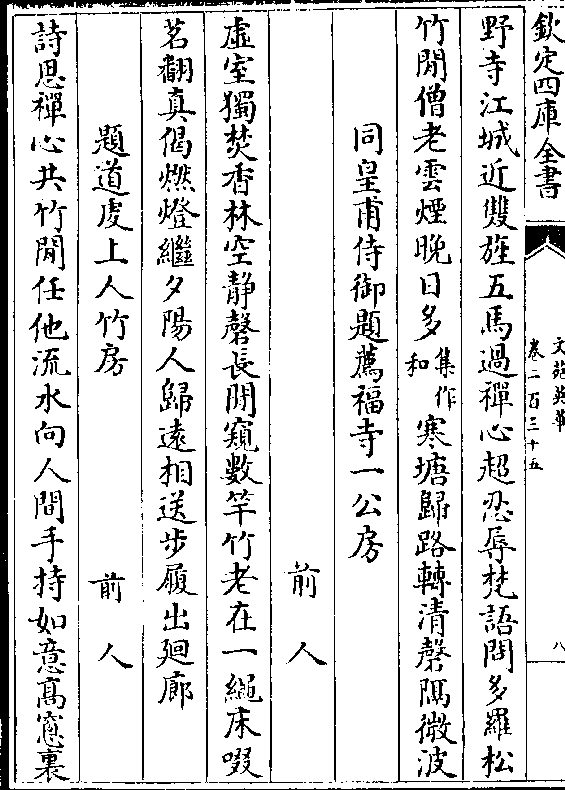 欽定四庫全書
文苑英華
卷二百三十五
八
野寺江城近雙旌五馬過禪心超忍辱梵語問多羅松
竹閒僧老雲煙晚日多集作和寒塘歸路轉清磬隔微波
同皇甫侍御題薦福寺一公房
前人
虛室獨焚香林空静磬長閒窺數竿竹老在一繩床啜
茗翻真偈燃燈繼夕陽人歸遠相送步履出廻廊
題道虔上人竹房
前人
詩思禪心共竹閒任他流水向人間手持如意髙窻裏